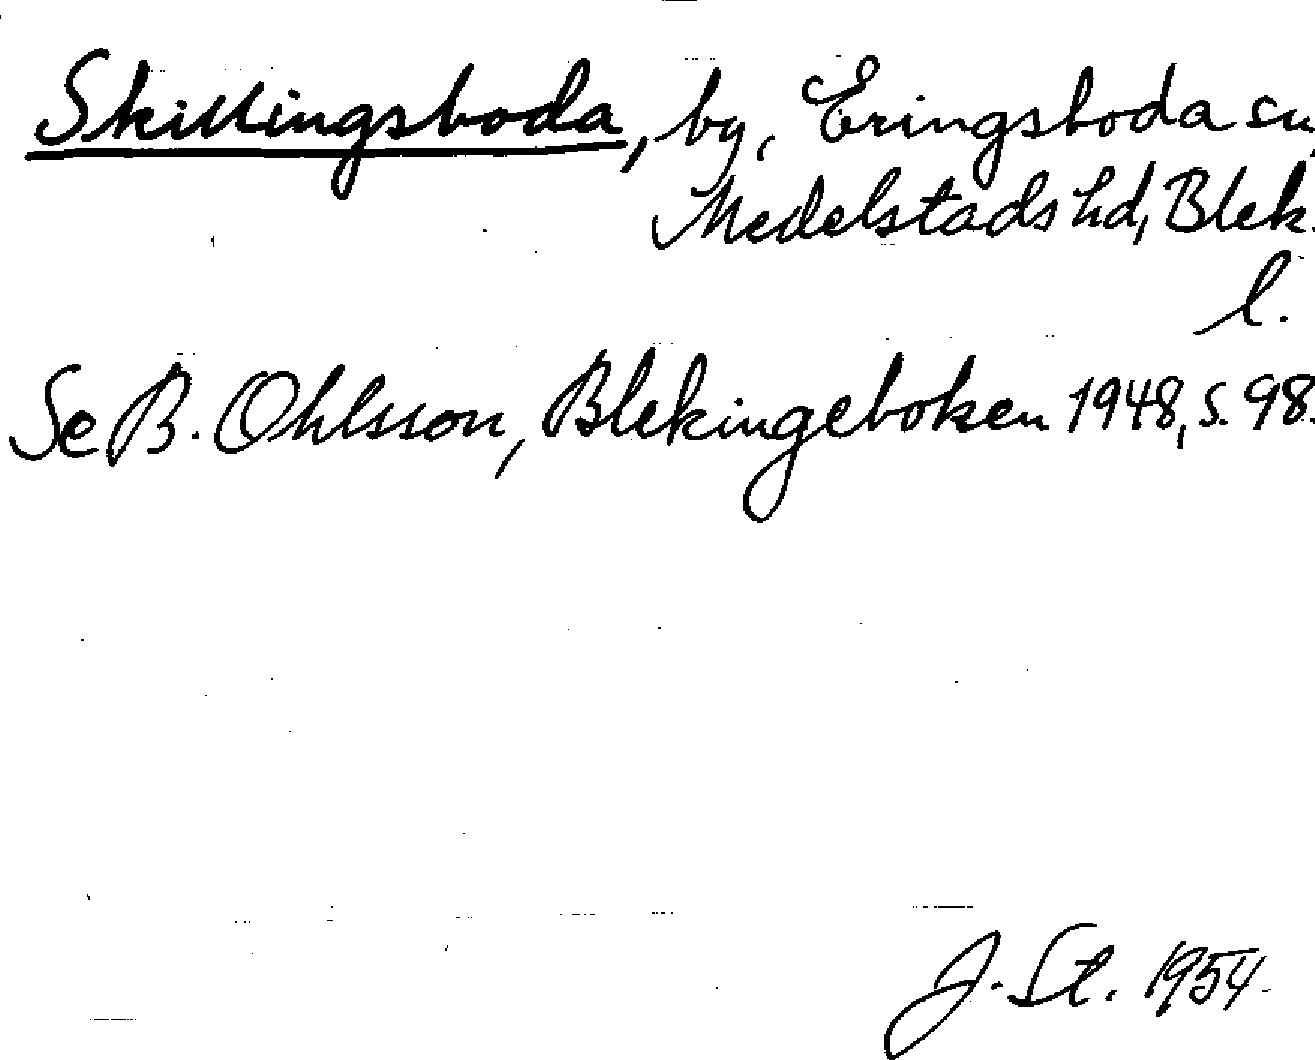 Skillingsboda, by, Eringsboda sn,
Medelstads hd, Blek.
l.
Se B. Ohlsson, Blekingeboken 1948, s. 98.
J. St. 1954.